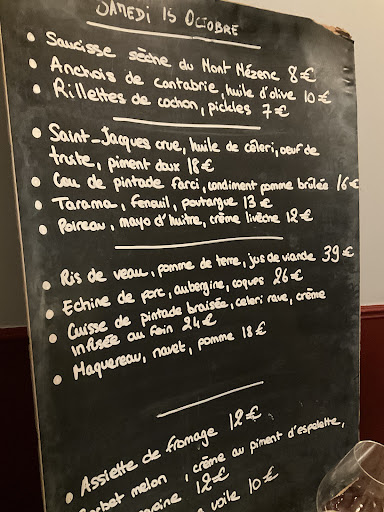 SAMEDI 15 OCTOBRE
• Saucisse sèche du Mont Mézenc 8€
• Anchois de cantabrie, huile d'olive 10€
• Rillettes de cochon, pickles 7€
• Saint-Jacques crue, huile de céleri, oeuf de
truite, piment doux 18€
• Cou de pintade farci, condiment pomme brûlée 16€
• Tarama, fenouil, poutargue 13€
• Poireau, mayo d'huitre, crème livèche 12€
• Ris de veau, pomme de terre, jus de viande 39€
• Echine de porc, aubergine, coques 26€
• Cuisse de pintade braisée, celeri rave, crème
infusée au foin 24€
• Maquereau, navet, pomme 18€
• Assiette de fromage 12€
melon, crème au piment d'espelette,
12€
voile 10€